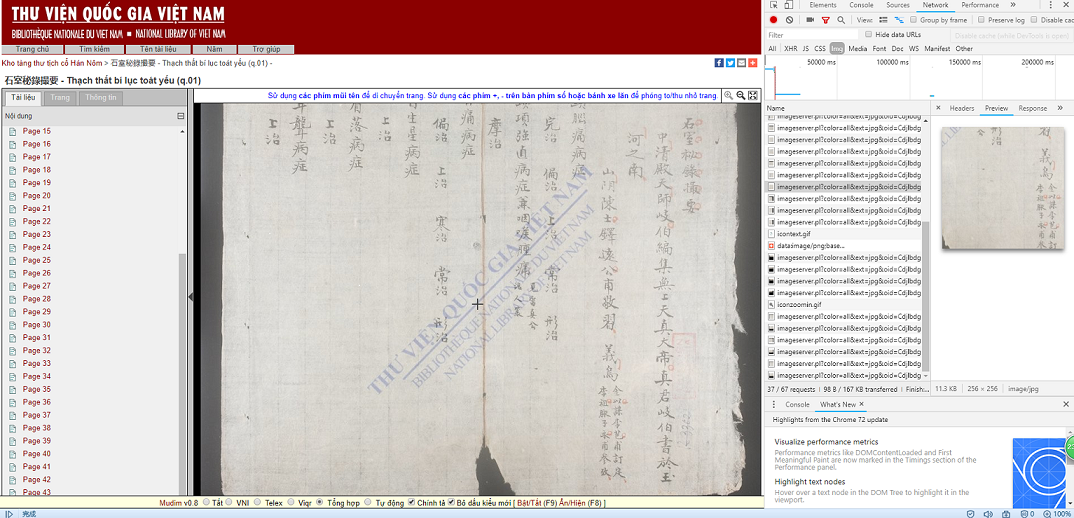 THƯ VIỆN QUỐC GIA VIỆT NAM
BIBLIOTHÈQUE NATIONALE DU VIETNAM ■ NATIONAL LIBRARY OF VIETNAM
Trang chủ Tìm kiếm Tên tài liệu Năm Trợ giúp
Kho tàng thư tịch cổ Hán Nôm > 石室秘錄撮要 - Thạch thất bí lục toát yếu (q.01) -
石室秘錄撮要 - Thạch thất bí lục toát yếu (q.01)
Tài liệu Trang Thông tin
Sử dụng các phím mũi tên để di chuyển trang. Sử dụng các phím +, - trên bàn phím số hoặc bánh xe lăn để phóng to/thu nhỏ trang.
Nội dung
Page 15
Page 16
Page 17
Page 18
Page 19
Page 20
Page 21
Page 22
Page 23
Page 24
Page 25
Page 26
Page 27
Page 28
Page 29
Page 30
Page 31
Page 32
Page 33
Page 34
Page 35
Page 36
Page 37
Page 38
Page 39
Page 40
Page 41
Page 42
Page 43
石室秘錄撮要
中清殿天師岐伯編集無上天真大帝真君岐伯書於玉
河之南
山陰陳士鐸遠公甫敬習 義烏
完治 偏治 上治 常治 形治
項強直病症兼咽喉腫痛
摩治
痛病症
偏治 上治 寒治 常治 形治
生星病症
上治
眉落病症
上治
耳聾病症
上治
THƯ VIỆN QUỐC GIA VIỆT NAM
BIBLIOTHÈQUE NATIONALE DU VIETNAM
NATIONAL LIBRARY OF VIETNAM
Mudim v0.8 Tắt VNI Telex Viqr Tổng hợp Tự động Chính tả Bỏ dấu kiểu mới [ Bật/Tắt (F9) Ẩn/Hiện (F8) ]
完成
Elements Console Sources Network Performance
View: Group by frame Preserve log Disable cac
Filter Hide data URLs
All XHR JS CSS Img Media Font Doc WS Manifest Other
50000 ms 100000 ms 150000 ms 200000 ms
Name
Headers Preview Response
imageserver.pl?color=all&ext=jpg&oid=CdjIbdg
imageserver.pl?color=all&ext=jpg&oid=CdjIbdg
imageserver.pl?color=all&ext=jpg&oid=CdjIbdg
imageserver.pl?color=all&ext=jpg&oid=CdjIbdg
imageserver.pl?color=all&ext=jpg&oid=CdjIbdg
imageserver.pl?color=all&ext=jpg&oid=CdjIbdg
imageserver.pl?color=all&ext=jpg&oid=CdjIbdg
imageserver.pl?color=all&ext=jpg&oid=CdjIbdg
imageserver.pl?color=all&ext=jpg&oid=CdjIbdg
imageserver.pl?color=all&ext=jpg&oid=CdjIbdg
icontext.gif
data:image/png;base...
imageserver.pl?color=all&ext=jpg&oid=CdjIbdg
imageserver.pl?color=all&ext=jpg&oid=CdjIbdg
imageserver.pl?color=all&ext=jpg&oid=CdjIbdg
imageserver.pl?color=all&ext=jpg&oid=CdjIbdg
iconzoomin.gif
imageserver.pl?color=all&ext=jpg&oid=CdjIbdg
imageserver.pl?color=all&ext=jpg&oid=CdjIbdg
imageserver.pl?color=all&ext=jpg&oid=CdjIbdg
imageserver.pl?color=all&ext=jpg&oid=CdjIbdg
義烏
37 / 67 requests | 98 B / 167 KB transferred | Finish:...
11.3 KB 256 × 256 image/jpg
Console What's New ×
Highlights from the Chrome 72 update
Visualize performance metrics
Performance metrics like DOMContentLoaded and First Meaningful Paint are now marked in the Timings section of the Performance panel.
Highlight text nodes
Hover over a text node in the DOM Tree to highlight it in the viewport.
0 100%